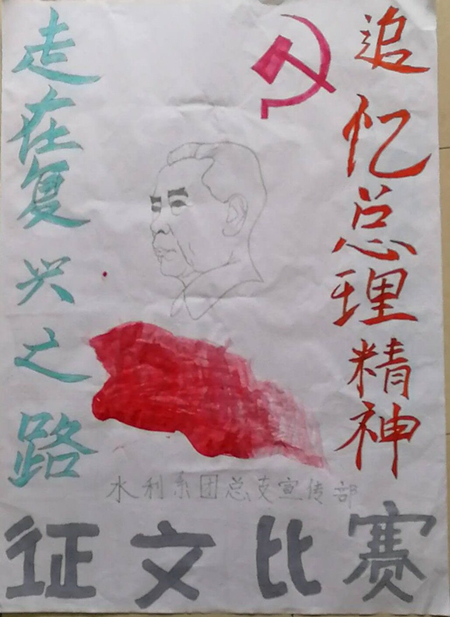 追忆总理精神
走在复兴之路
水利系团总支宣传部
征文比赛